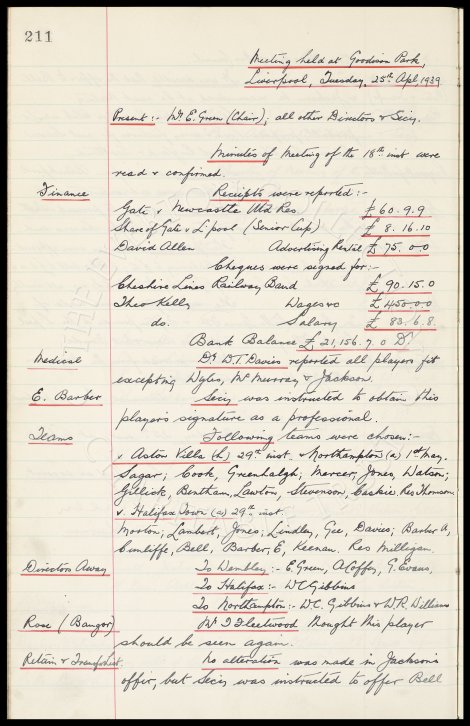 211
Meeting held at Goodison Park,
Liverpool, Tuesday, 25th Apl, 1939
Present:- Mr E. Green (Chair), all other Directors & Secy.
Minutes of Meeting of the 18th inst were
read & confirmed.
Finance Receipts were reported:-
Gate v Newcastle Utd Res £60.9.9
Share of Gate v L'pool (Senior Cup) £8.16.10
David Allen Advertising Rental £75.0.0
Cheques were signed for:-
Cheshire Lines Railway Band £90.15.0
Theo Kelly Wages &c £450.0.0
do. Salary £83.6.8
Bank Balance £21,156.7.0 Dr
Medical Dr D.T. Davies reported all players fit
excepting Wyles, McMurray & Jackson.
E. Barber Secy was instructed to obtain this
player's signature as a professional.
Teams Following teams were chosen:-
v Aston Villa (h) 29th inst. & Northampton (a) 1st May.
Sagar; Cook, Greenhalgh; Mercer, Jones, Watson;
Gillick, Bentham, Lawton, Stevenson, Caskie Res Thomson
v. Halifax Town (a) 29th inst.
Morton; Lambert, Jones; Lindley, Gee, Davies; Barber A,
Cunliffe, Bell, Barber, E, Keenan. Res Milligan.
Directors Away To Wembley:- E. Green, A. Coffey, G. Evans,
To Halifax:- W.C. Gibbins
To Northampton:- W.C. Gibbins & W.R. Williams
Rose (Bangor) Mr J. Fleetwood thought this player
should be seen again.
Retain & Transfer list. No alteration was made in Jackson's
offer, but Secy was instructed to offer Bell